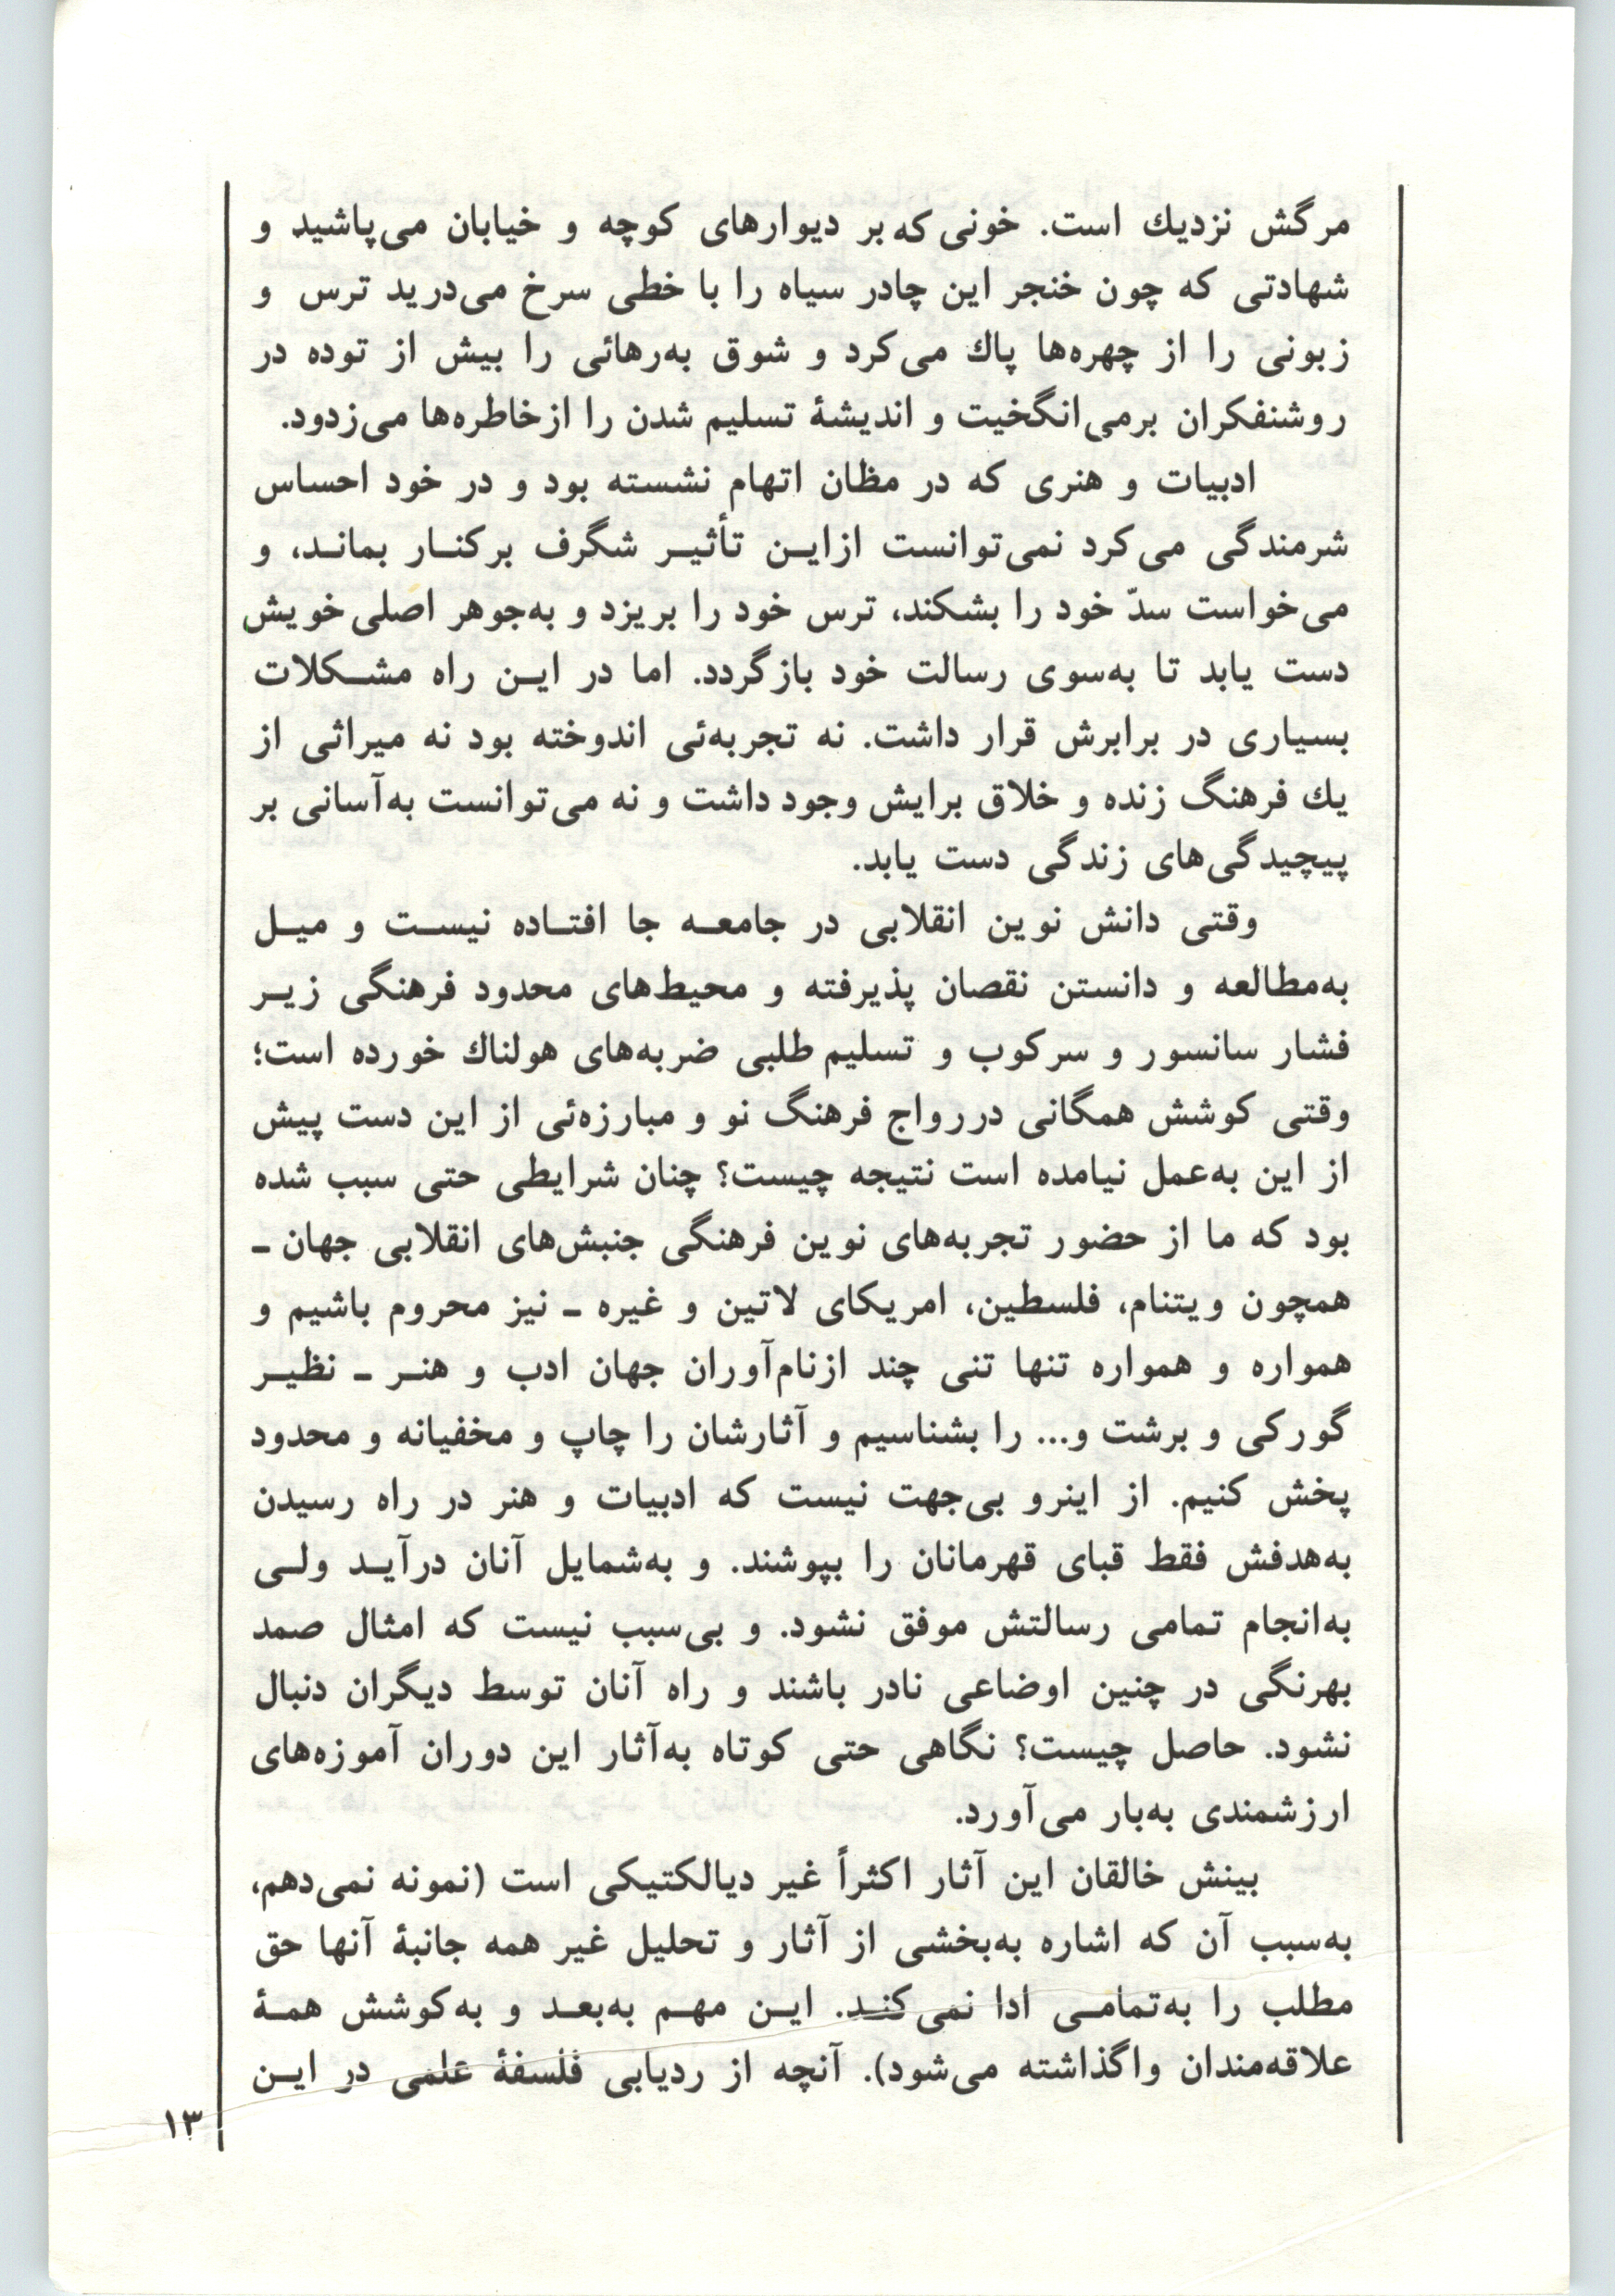 مرگش نزدیك است. خونی که بر دیوارهای کوچه و خیابان می‌پاشید و
شهادتی که چون خنجر این چادر سیاه را با خطی سرخ می‌درید ترس و
زبونی را از چهره‌ها پاك می‌کرد و شوق به‌رهائی را بیش از توده در
روشنفکران برمی‌انگخیت و اندیشهٔ تسلیم شدن را ازخاطره‌ها می‌زدود.
ادبیات و هنری که در مظان اتهام نشسته بود و در خود احساس
شرمندگی می‌کرد نمی‌توانست ازایـن تأثیـر شگرف برکنـار بمانـد، و
می‌خواست سدّ خود را بشکند، ترس خود را بریزد و به‌جوهر اصلی خویش
دست یابد تا به‌سوی رسالت خود بازگردد. اما در ایـن راه مشـکلات
بسیاری در برابرش قرار داشت. نه تجربه‌ئی اندوخته بود نه میراثی از
یك فرهنگ زنده و خلاق برایش وجود داشت و نه می‌توانست به‌آسانی بر
پیچیدگی‌های زندگی دست یابد.
وقتی دانش نوین انقلابی در جامعـه جا افتـاده نیسـت و میـل
به‌مطالعه و دانستن نقصان پذیرفته و محیط‌های محدود فرهنگی زیـر
فشار سانسور و سرکوب و تسلیم طلبی ضربه‌های هولناك خورده است؛
وقتی کوشش همگانی دررواج فرهنگ نو و مبارزه‌ئی از این دست پیش
از این به‌عمل نیامده است نتیجه چیست؟ چنان شرایطی حتی سبب شده
بود که ما از حضور تجربه‌های نوین فرهنگی جنبش‌های انقلابی جهان ـ
همچون ویتنام، فلسطین، امریکای لاتین و غیره ـ نیز محروم باشیم و
همواره و همواره تنها تنی چند ازنام‌آوران جهان ادب و هنـر ـ نظیـر
گورکی و برشت و... را بشناسیم و آثارشان را چاپ و مخفیانه و محدود
پخش کنیم. از اینرو بی‌جهت نیست که ادبیات و هنر در راه رسیدن
به‌هدفش فقط قبای قهرمانان را بپوشند. و به‌شمایل آنان درآیـد ولـی
به‌انجام تمامی رسالتش موفق نشود. و بی‌سبب نیست که امثال صمد
بهرنگی در چنین اوضاعی نادر باشند و راه آنان توسط دیگران دنبال
نشود. حاصل چیست؟ نگاهی حتی کوتاه به‌آثار این دوران آموزه‌های
ارزشمندی به‌بار می‌آورد.
بینش خالقان این آثار اکثراً غیر دیالکتیکی است (نمونه نمی‌دهم،
به‌سبب آن که اشاره به‌بخشی از آثار و تحلیل غیر همه جانبهٔ آنها حق
مطلب را به‌تمامـی ادا نمی‌کنـد. ایـن مهـم به‌بعـد و به‌کوشش همـهٔ
علاقه‌مندان واگذاشته می‌شود). آنچه از ردیابی فلسفهٔ علمی در ایـن
۱۳